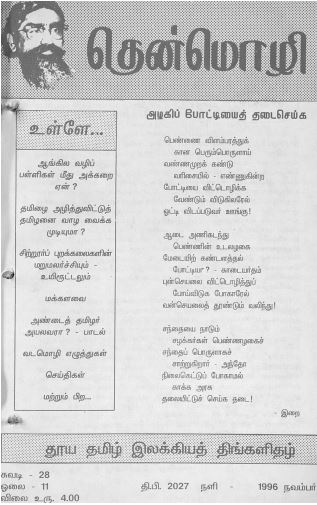 தென்மொழி
உள்ளே...
ஆங்கில வழிப்
பள்ளிகள் மீது அக்கறை
ஏன் ?
தமிழை அழித்துவிட்டுத்
தமிழனை வாழ வைக்க
முடியுமா ?
சிற்றூர்ப் புறக்கலைகளின்
மறுமலர்ச்சியும் -
உயிரூட்டலும்
மக்களவை
அண்டைத் தமிழர்
அயலவரா ? - பாடல்
வடமொழி எழுத்துகள்
செய்திகள்
மற்றும் பிற...
அழகிப் போட்டியைத் தடைசெய்க
பெண்ணை விளம்பரத்துக்
கான பெரும்பொருளாய்
வண்ணமுறக் கண்டு
வரிசையில் - எண்ணுகின்ற
போட்டியை விட்டொழிக்க
வேண்டும் விடுகிலரேல்
ஓட்டி விடப்படுவர் ஊங்கு!
ஆடை அணிகடந்து
பெண்ணின் உடலழகை
மேடையிற் கண்டளத்தல்
போட்டியா ? - காடையர்தம்
புன்செயலை விட்டொழித்துப்
போய்விடுக போகாரேல்
வன்செயலைத் தூண்டும் வலிந்து!
சந்தையை நாடும்
சழக்கர்கள் பெண்ணழகைச்
சந்தைப் பொருளாகச்
சாற்றுகிறார் - அந்தோ
நிலைகெட்டுப் போகாமல்
காக்க அரசு
தலையிட்டுச் செய்க தடை!
- இறை
தூய தமிழ் இலக்கியத் திங்களிதழ்
சுவடி - 28
ஓலை - 11
தி.பி. 2027 நளி - 1996 நவம்பர்
விலை உரு. 4.00